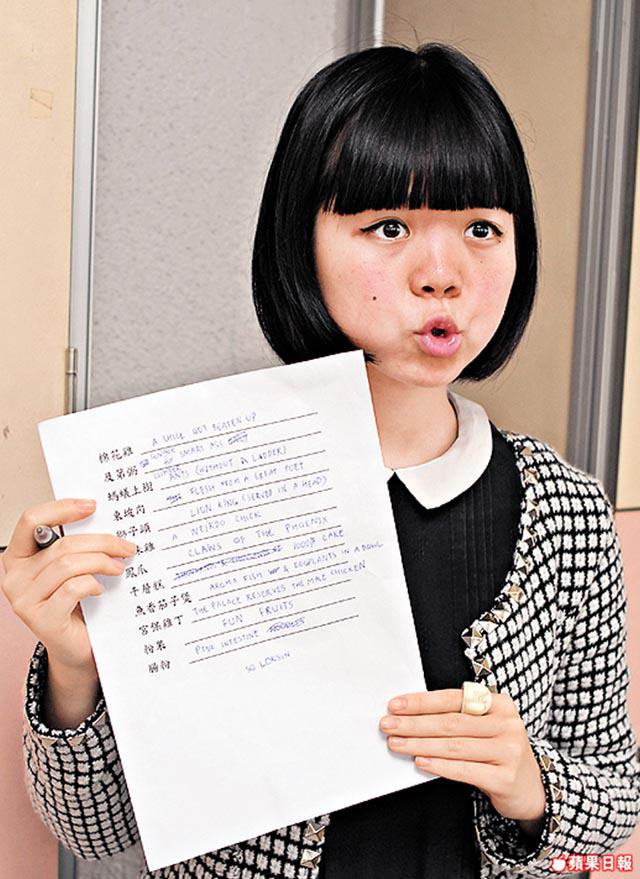 棉花雞 A WHILE GOT BEATEN UP
及第粥 OF SMART ASS
螞蟻上樹 ANTS (WITHOUT A LADDER)
東坡肉 FLESH FROM A GREAT POET
獅子頭 LION KING (SERVED IN A HEAD)
味雞 A WEIRDO CHICK
鳳爪 CLAWS OF THE PHOENIX
千層糕 1000'S CAKE
魚香茄子煲 AROMA FISH & EGGPLANTS IN A BOWL
宮保雞丁 THE PALACE RESERVES THE MALE CHICKEN
粉果 FUN FRUITS
腸粉 PINK INTESTINE
SO LOKSIN
蘋果日報